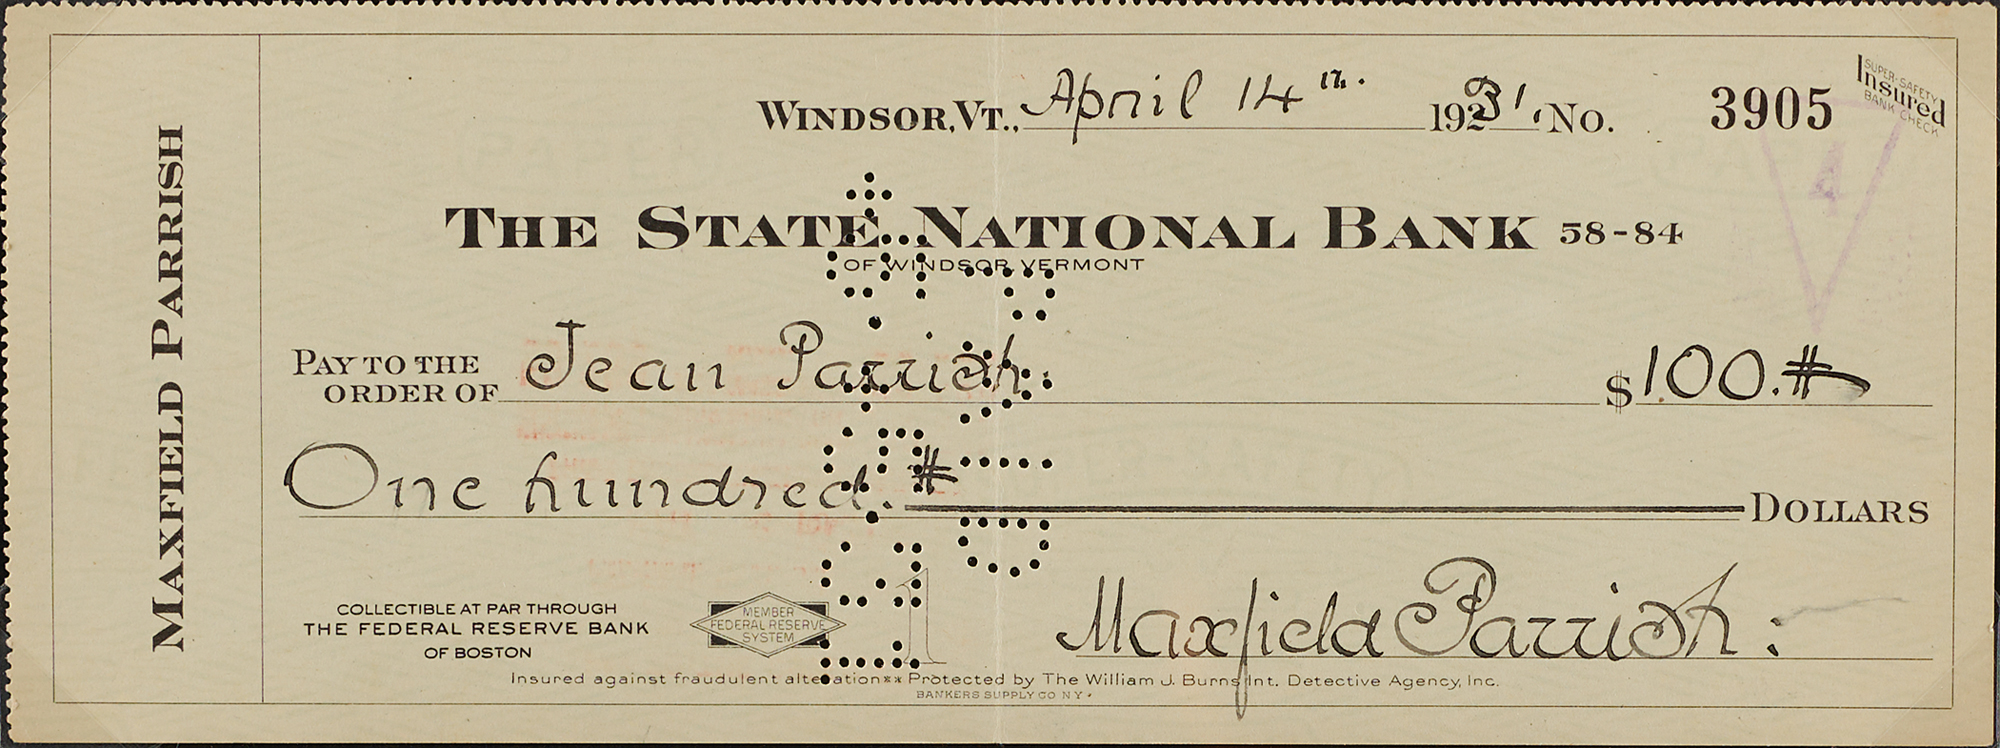 MAXFIELD PARRISH
WINDSOR, VT., April 14th. 1931, No. 3905
SUPER-SAFETY
Insured
BANK CHECK
A
THE STATE NATIONAL BANK 58-84
OF WINDSOR, VERMONT
PAY TO THE ORDER OF Jean Parrish: $100.#
One hundred.# DOLLARS
COLLECTIBLE AT PAR THROUGH
THE FEDERAL RESERVE BANK
OF BOSTON
MEMBER
FEDERAL RESERVE
SYSTEM
1
Maxfield Parrish:
Insured against fraudulent alteration** Protected by The William J. Burns Int. Detective Agency, Inc.
BANKERS SUPPLY CO NY